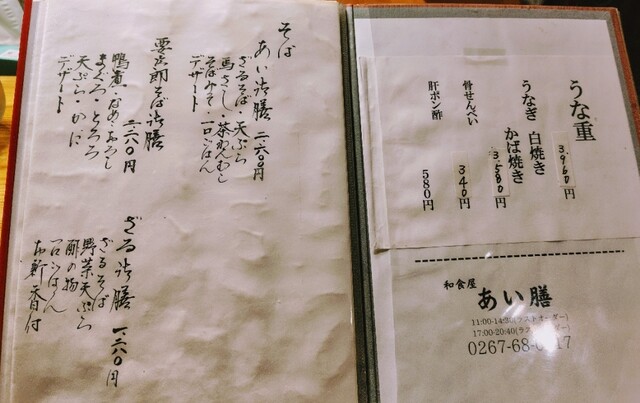 そば
あい御膳 二二六〇円
ざるそば・天ぷら
馬さし・茶わんむし
そばみそ・一口ごはん
デザート
要次郎そば御膳
二二八〇円
鴨煮・なめこおろし
まぐろ・とろろ
天ぷら・かに
デザート
ざる御膳 一三八〇円
ざるそば
野菜天ぷら
酢の物
一口ごはん
お新香付
うな重 3,960円
うなぎ 白焼き
かば焼き 3,580円
骨せんべい 340円
肝ポン酢 580円
和食屋
あい膳
11:00-14:30(ラストオーダー)
17:00-20:40(ラストオーダー)
0267-68-